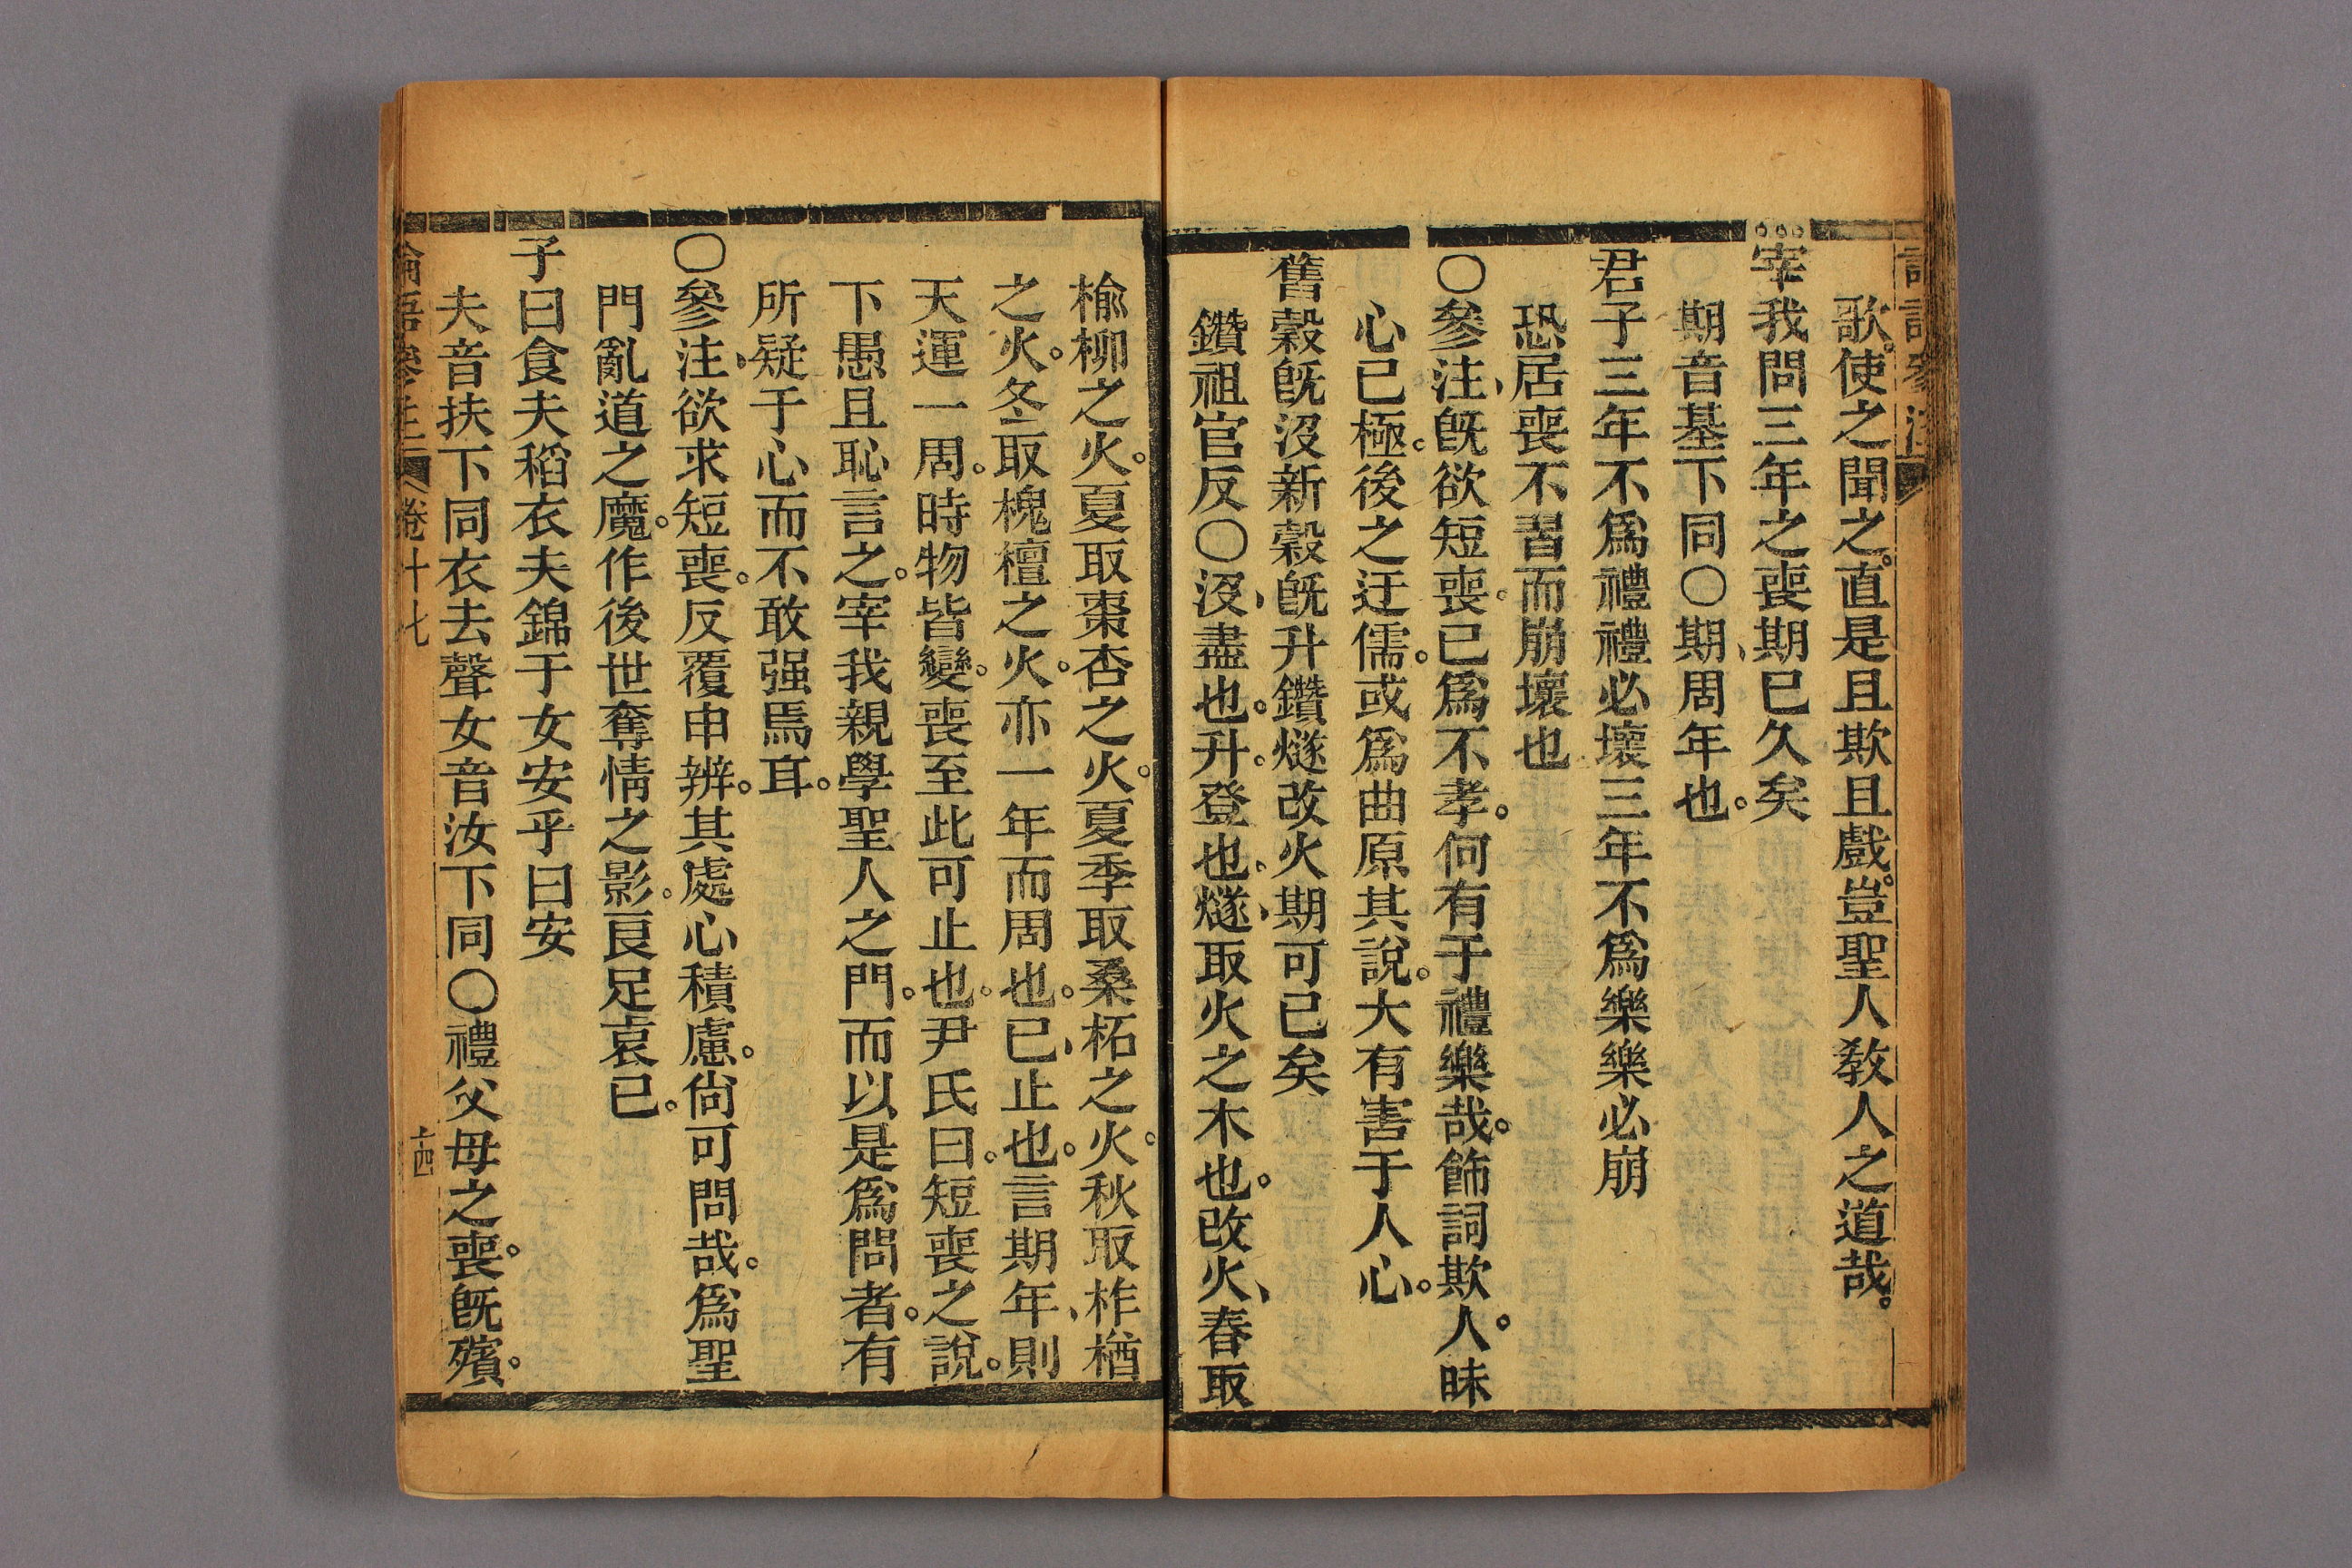 歌。使之聞之。直是且欺且戲。豈聖人教人之道哉。
宰我問三年之喪期已久矣
期音基下同○期、周年也。
君子三年不爲禮禮必壞三年不爲樂樂必崩
恐居喪不習而崩壞也
○參注、旣欲短喪。已爲不孝。何有于禮樂哉。飾詞欺人。昧
心已極。後之迂儒。或爲曲原其說。大有害于人心。
舊穀旣沒新穀旣升鑽燧改火期可已矣
鑽祖官反○沒、盡也。升。登也。燧、取火之木也。改火、春取
榆柳之火。夏取棗杏之火。夏季取桑柘之火。秋取柞楢
之火。冬取槐檀之火。亦一年而周也。已、止也。言期年、則
天運一周。時物皆變。喪至此可止也。尹氏曰。短喪之說。
下愚且恥言之。宰我親學聖人之門。而以是爲問者。有
所疑于心而不敢强焉耳。
○參注、欲求短喪。反覆申辨。其處心積慮。尙可問哉。爲聖
門亂道之魔。作後世奪情之影。良足哀已。
子曰食夫稻衣夫錦于女安乎曰安
夫音扶下同衣去聲女音汝下同○禮父母之喪。旣殯。
論語參注 卷十七 十四